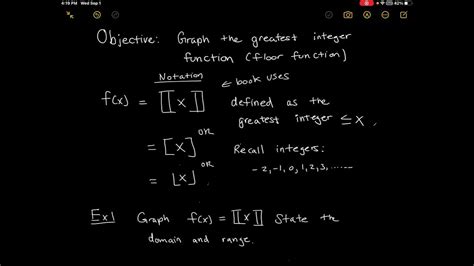 4:19 PM Wed Sep 1
42%
Objective: Graph the greatest integer
function (floor function)
Notation
← book uses
f(x) = ⟦x⟧
defined as the
greatest integer ≤ x.
OR
= [x]
Recall integers:
OR
= ⌊x⌋
-2, -1, 0, 1, 2, 3, ......
Ex1 Graph f(x) = ⟦x⟧ State the
domain and range.